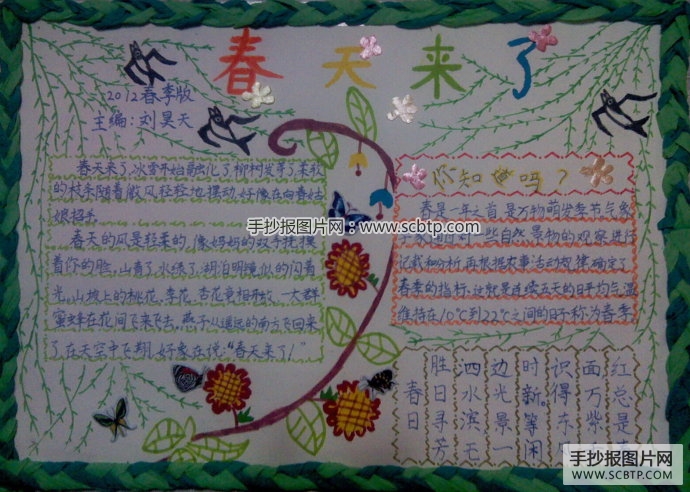 春天来了
2012春季版
主编:刘昊天
春天来了,冰雪开始融化了,柳树发芽了,柔软
的枝条随着微风轻轻地摆动,好像在向春姑
娘招手
春天的风是轻柔的,像妈妈的双手抚摸
着你的脸,山青了,水绿了,湖泊明镜似的闪着
光,山坡上的桃花、李花、杏花竞相开放,一大群
蜜蜂在花间飞来飞去,燕子从遥远的南方飞回来
了,在天空中飞翔,好像在说:"春天来了!"
手抄报图片网:www.scbtp.com
你知 吗?
春是一年之首,是万物萌发季节气象
学家通过对一些自然景物的观察进行
记载和分析,再根据农事活动规律确定了
春季的指标,这就是连续五天的日平均气温
维持在10℃到22℃之间的日子称为春季
春日
胜日寻芳
泗水滨无
边光景一
时新等闲
识得东
面万紫
红总是
手抄报图片网
WWW.SCBTP.COM